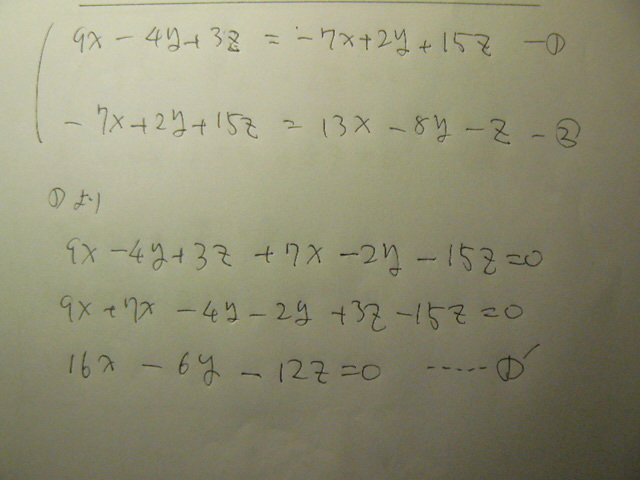 9x - 4y + 3z = -7x + 2y + 15z - ①
-7x + 2y + 15z = 13x - 8y - z - ②
①より
9x - 4y + 3z + 7x - 2y - 15z = 0
9x + 7x - 4y - 2y + 3z - 15z = 0
16x - 6y - 12z = 0 ----- ①'